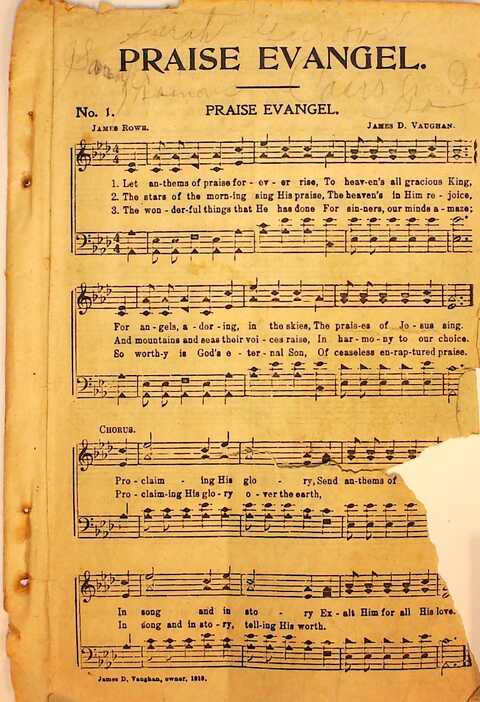 Sarah
PRAISE EVANGEL.
No. 1. PRAISE EVANGEL.
JAMES ROWE. JAMES D. VAUGHAN.
1. Let an-thems of praise for-ev-er rise, To heav-en's all gracious King,
2. The stars of the morn-ing sing His praise, The heaven's in Him re-joice,
3. The won-der-ful things that He has done For sin-ners, our minds a-maze;
For an-gels, a-dor-ing, in the skies, The prais-es of Je-sus sing.
And mountains and seas their voi-ces raise, In har-mo-ny to our choice.
So worth-y is God's e-ter-nal Son, Of ceaseless en-rap-tured praise.
CHORUS.
Pro-claim-ing His glo-ry, Send an-thems of
Pro-claim-ing His glo-ry o-ver the earth,
In song and in sto-ry Ex-alt Him for all His love.
In song and in sto-ry, tell-ing His worth.
James D. Vaughan, owner, 1919.